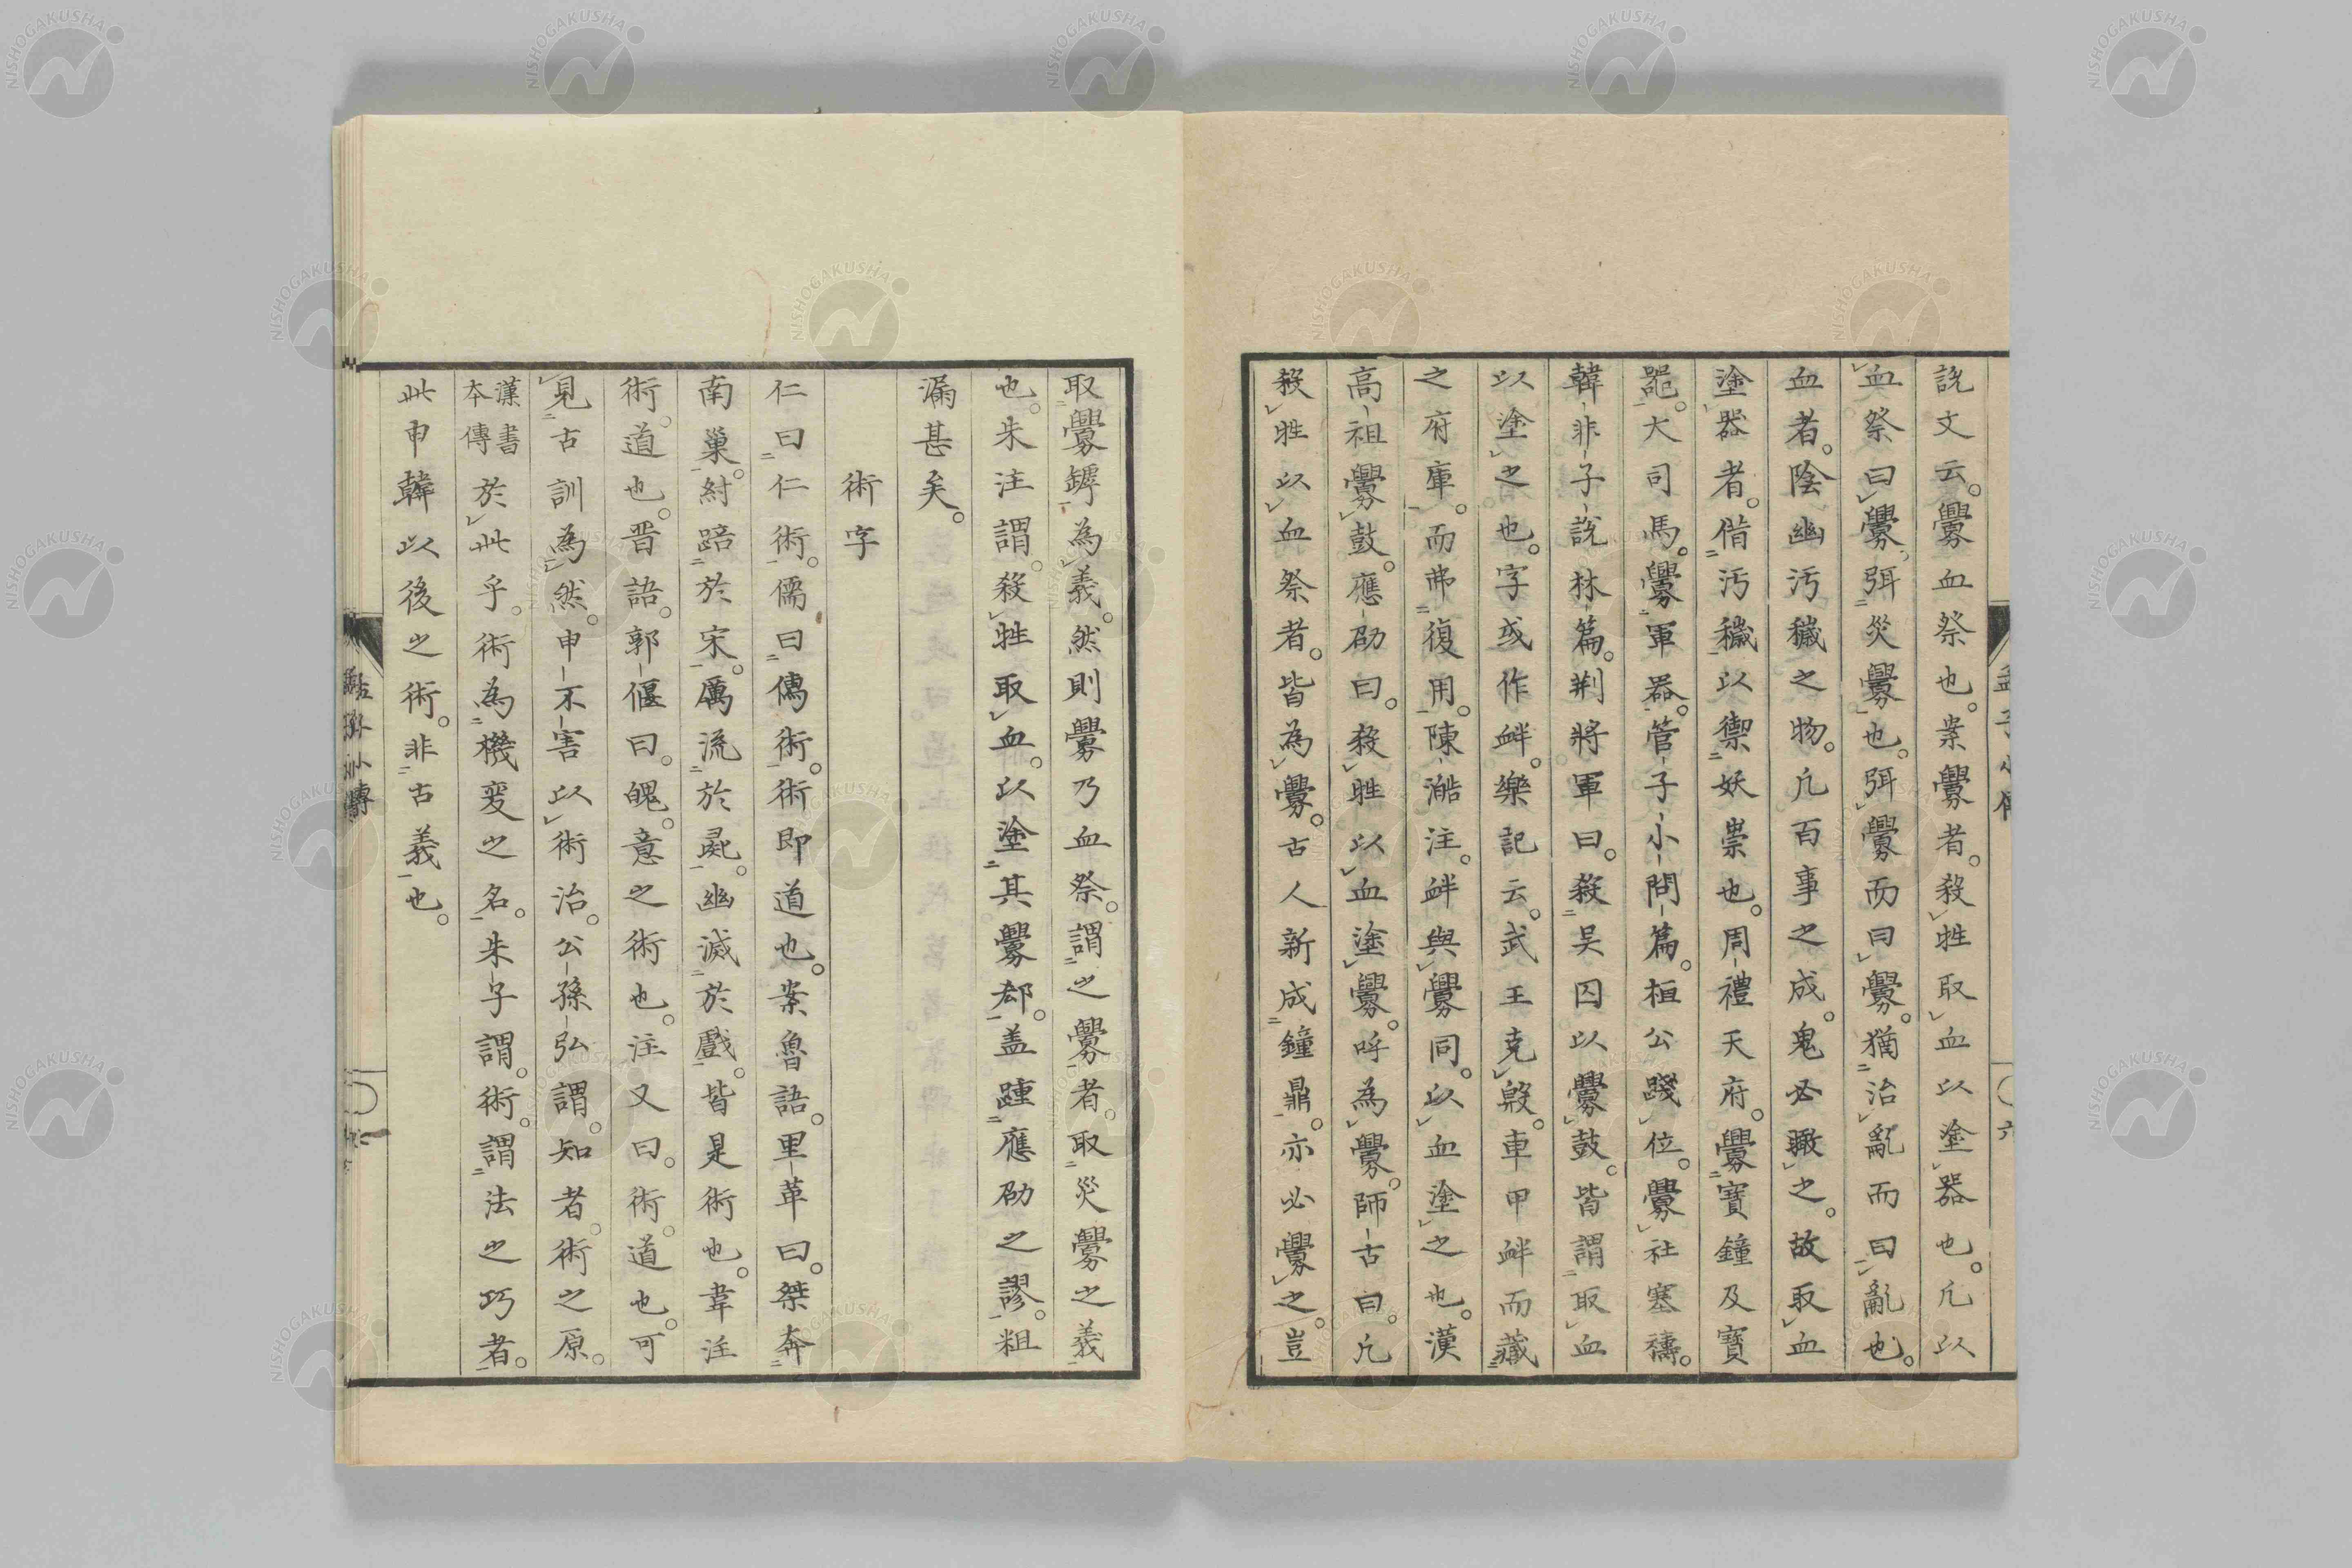 說文云。釁血祭也。案釁者。殺牲取血以塗器也。凡以
血祭曰釁。弭災釁也。弭釁而曰釁。猶治亂而曰亂也。
血者。陰幽污穢之物。凡百事之成。鬼必瞰之。故取血
塗器者。借污穢以禦妖祟也。周禮天府。釁寶鐘及寶
器。大司馬。釁軍器。管子小問篇。桓公踐位。釁社塞禱。
韓非子說林篇。荆將軍曰。殺吴囚以釁鼓。皆謂取血
以塗之也。字或作衅。樂記云。武王克殷。車甲衅而藏
之府庫。而弗復用。陳澔注。衅與釁同。以血塗之也。漢
高祖釁鼓。應劭曰。殺牲以血塗釁。呼為釁。師古曰。凡
殺牲以血祭者。皆為釁。古人新成鐘鼎。亦必釁之。豈
取釁罅為義。然則釁乃血祭。謂之釁者。取災釁之義
也。朱注謂。殺牲取血。以塗其釁郤。盖踵應劭之謬。粗
漏甚矣。
術字
仁曰仁術。儒曰儒術。術即道也。案魯語。里革曰。桀奔
南巢。紂踣於宋。厲流於彘。幽滅於戲。皆是術也。韋注
術。道也。晋語。郭偃曰。醜。意之術也。注又曰。術。道也。可
見古訓為然。申不害以術治。公孫弘謂。知者。術之原。
漢書本傳於此乎。術為機変之名。朱子謂。術。謂法之巧者。
此申韓以後之術。非古義也。